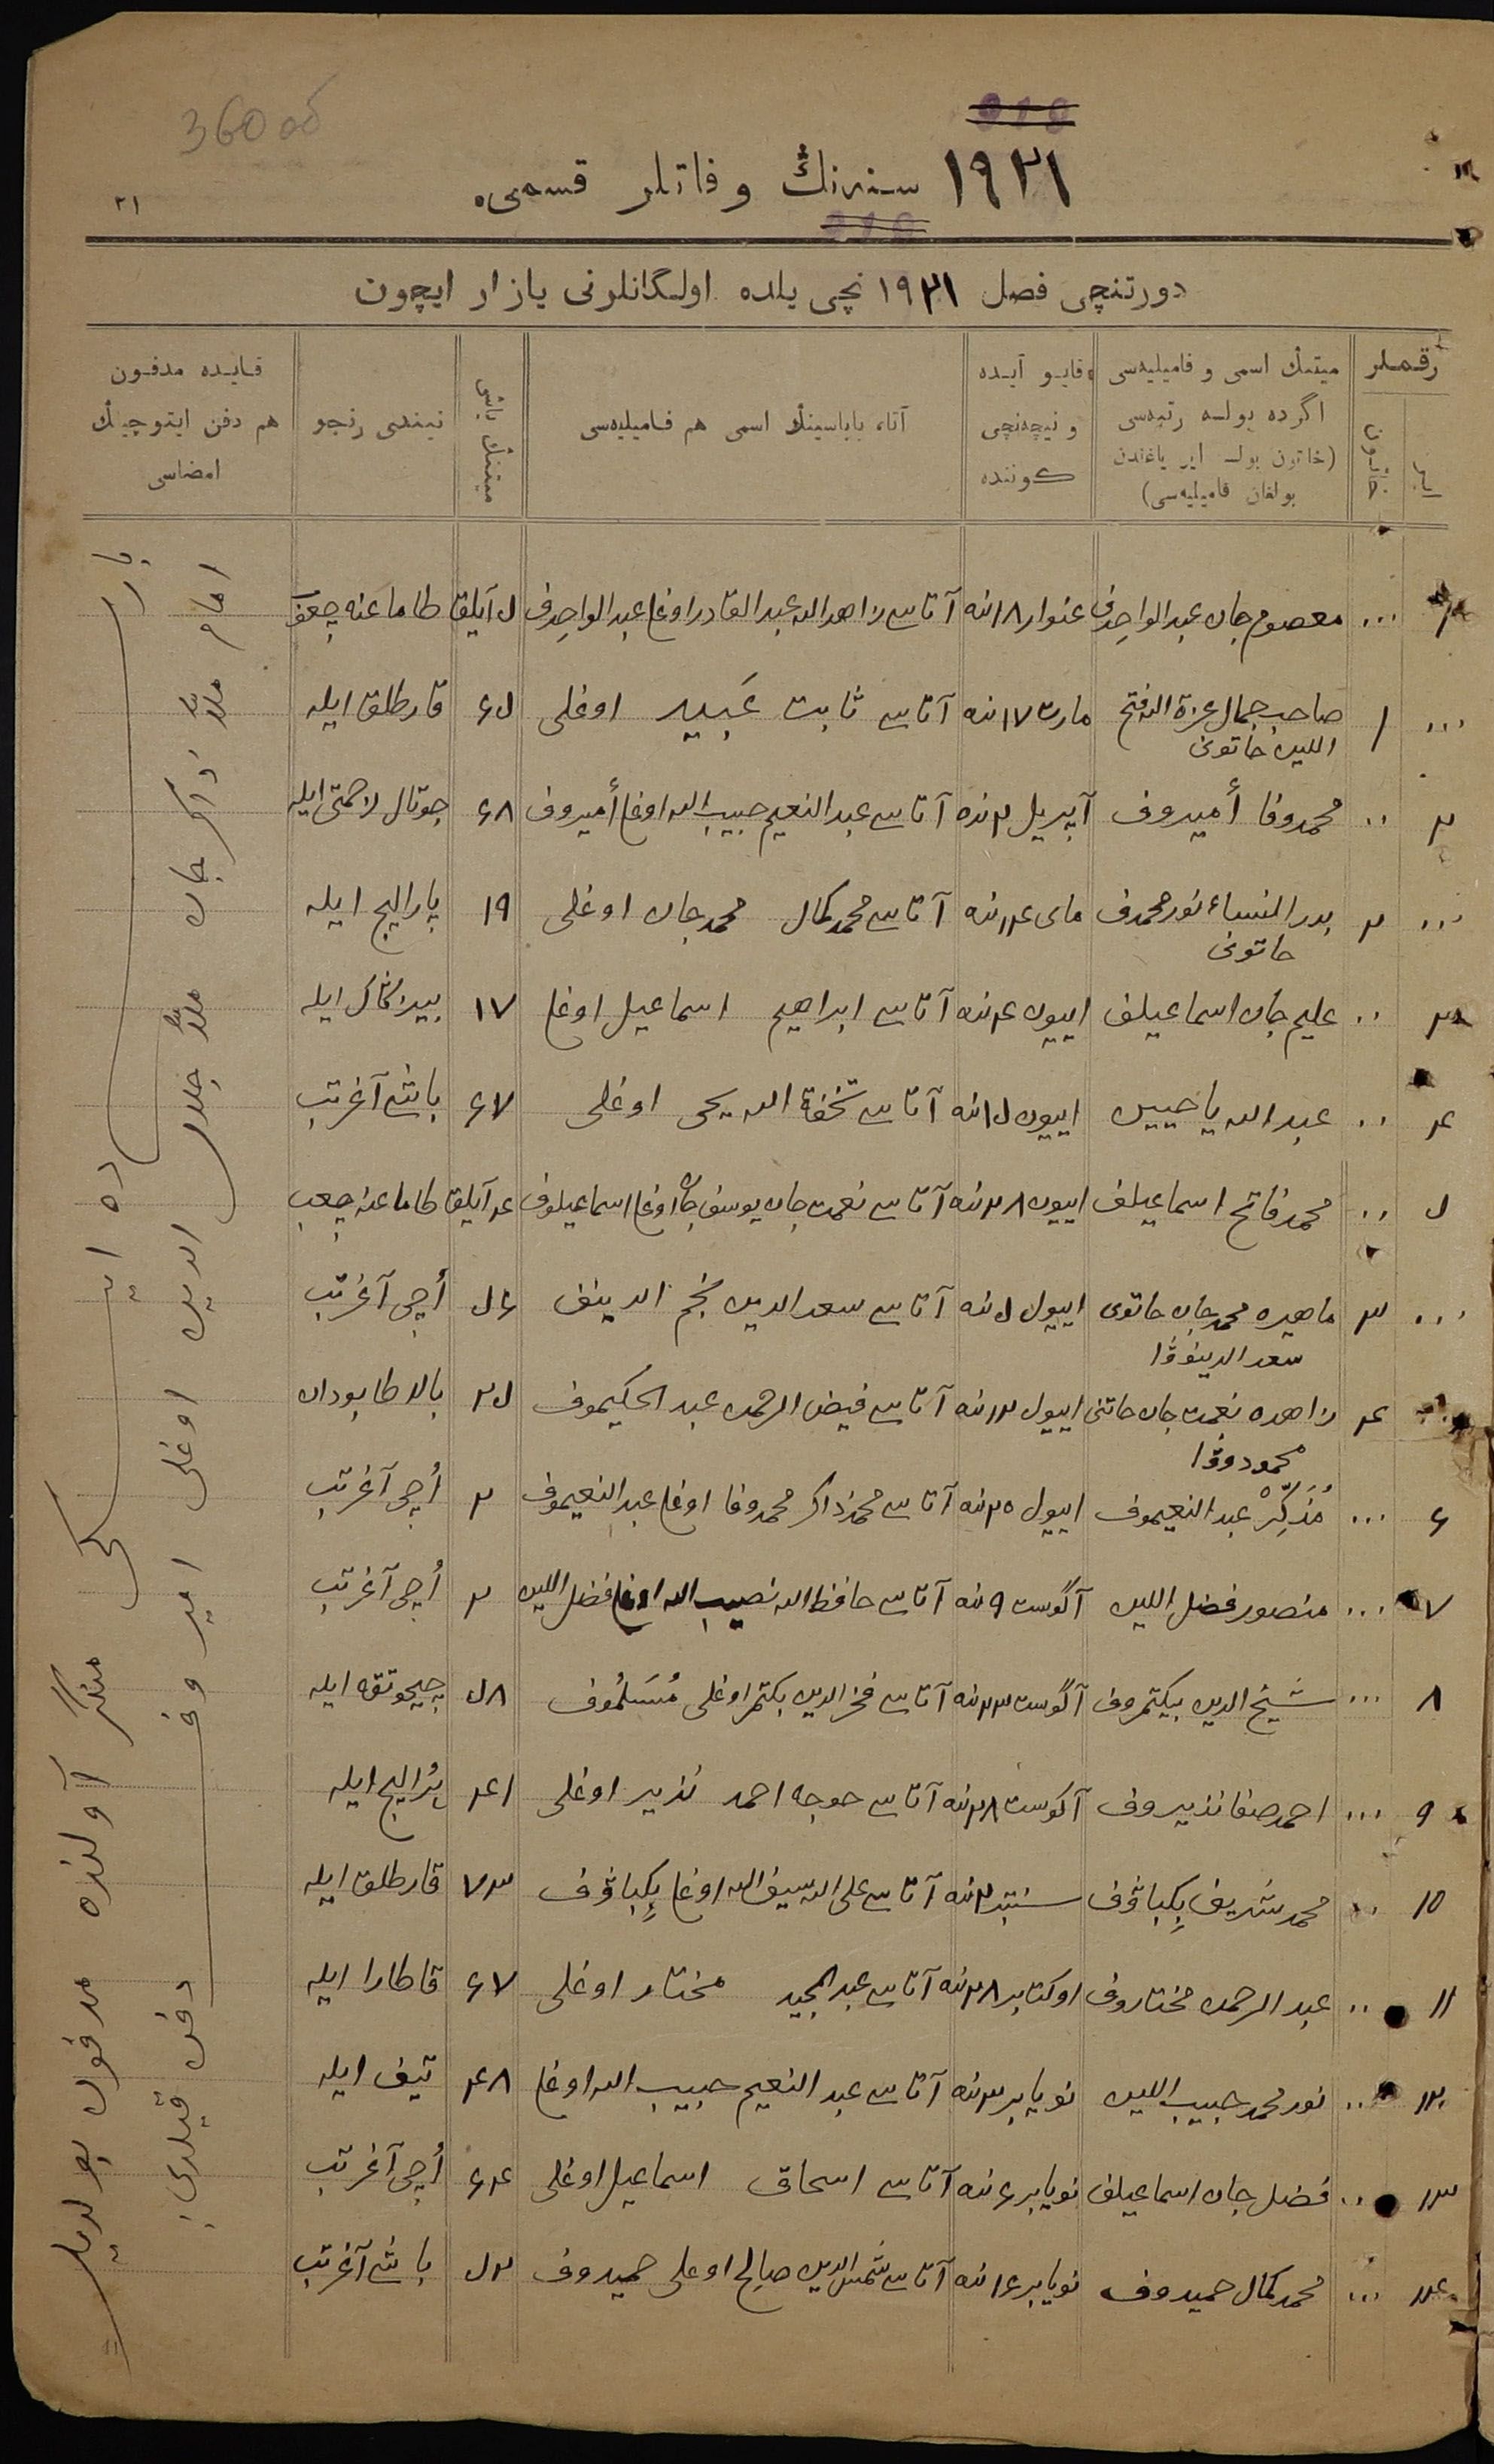 360 об
١٩٢١ سنه‌نڭ وفاتلر قسمی.
٢١
دورتنچی فصل ١٩٢١ نچی یلده اولگانلرنی یازار ایچون
رقملر
میتنڭ اسمی و فامیلیه‌سی اگرده بولسه رتبه‌سی (خاتون بولسه ایر یاغندن بولغان فامیلیه‌سی)
قایو آیده و نیچه‌نچی كوننده
آتا، باباسینڭ اسمی هم فامیلیه‌سی
میتنڭ یاشی
نیندی رنجو
قایده مدفون هم دفن ایتوچینڭ امضاسی
١ ... معصوم جان عبد الواحدف غنوار ١٨ نده آتاسی زاهد الله عبد القادر اوغلی عبد الواحدف ٥ آیلق طاماغنه چعب
... ١ صاحب جمال عزة الله فتح اللین خاتونی مارت ١٧ نده آتاسی ثابت عبید اوغلی ٦٥ قارطلق ایله
٢ .. محمد وفا أمیروف آپریل ٢ نده آتاسی عبد النعیم حبیب الله اوغلی أمیروف ٦٨ جوتال لاحمتی ایله
... ٢ بدر النساء نور محمدف خاتونی مای ١٤ نده آتاسی محمد كمال محمد جان اوغلی ١٩ پارالیچ ایله
٣ .. علیم جان اسماعیلف اییون ٤ نده آتاسی ابراهیم اسماعیل اوغلی ١٧ ایله
٤ .. عبد الله یاحیین اییون ١٥ نده آتاسی تحفة الله یحی اوغلی ٦٧ باشی آغرتب
٥ .. محمد فاتح اسماعیلف اییون ٢٨ نده آتاسی نعمت جان یوسف جان اوغلی اسماعیلوف ٤ آیلق طاماغنه چعب
... ٣ ماهیره محمد جان خاتونی سعد الدینوڤا اییول ٥ نده آتاسی سعد الدین نجم الدینف ٥٦ أچی آغرتب
٤ زاهده نعمت جان خاتنی محمودوڤا اییول ١٢ نده آتاسی فیض الرحمن عبد الحكیموف ٢٥ بالا طابودان
٦ ... مُذَكِّرْ عبد النعیموف اییول ٢٥ نده آتاسی محمد ذاكر محمد وفا اوغلی عبد النعیموف ٢ أچی آغرتب
٧ ... منصور فضل اللین آگوست ٩ نده آتاسی حافظ الله نصیب الله اوغلی فضل اللین ٢ أچی آغرتب
٨ ... شیخ الدین بیكتمروف آگوست ٢٣ نده آتاسی فخر الدین بكتمر اوغلی مُسَلمُوف ٥٨ چیحوتقه ایله
٩ ... احمد صفا نذیروف آگوست ٢٨ نده آتاسی خوجه احمد نذیر اوغلی ٤١ پرالیچ ایله
١٠ .. محمد شریف بكباوف سنتبر ٢ نده آتاسی علی الله سیف الله اوغلی بكباوف ٧٣ قارطلق ایله
١١ .. عبد الرحمن مختاروف اوكتابر ٢٨ نده آتاسی عبد المجید مختار اوغلی ٦٧ قاطارا ایله
١٢ .. نور محمد حبیب اللین نویابر ٣ نده آتاسی عبد النعیم حبیب الله اوغلی ٤٨ تیف ایله
١٣ .. فضل جان اسماعیلف نویابر ٦ نده آتاسی اسحاق اسماعیل اوغلی ٦٤ أچی آغرتب
١٤ ... محمد كمال حمیدوف نویابر ١٦ نده آتاسی شمس الدین صالح اوغلی حمیدوف ٥٢ باشی آغرتب
امام ملا ذاكر جان ملا جلال الدین اوغلی امیروف دفن قیلدی
آولنده مدفون بولدیلر